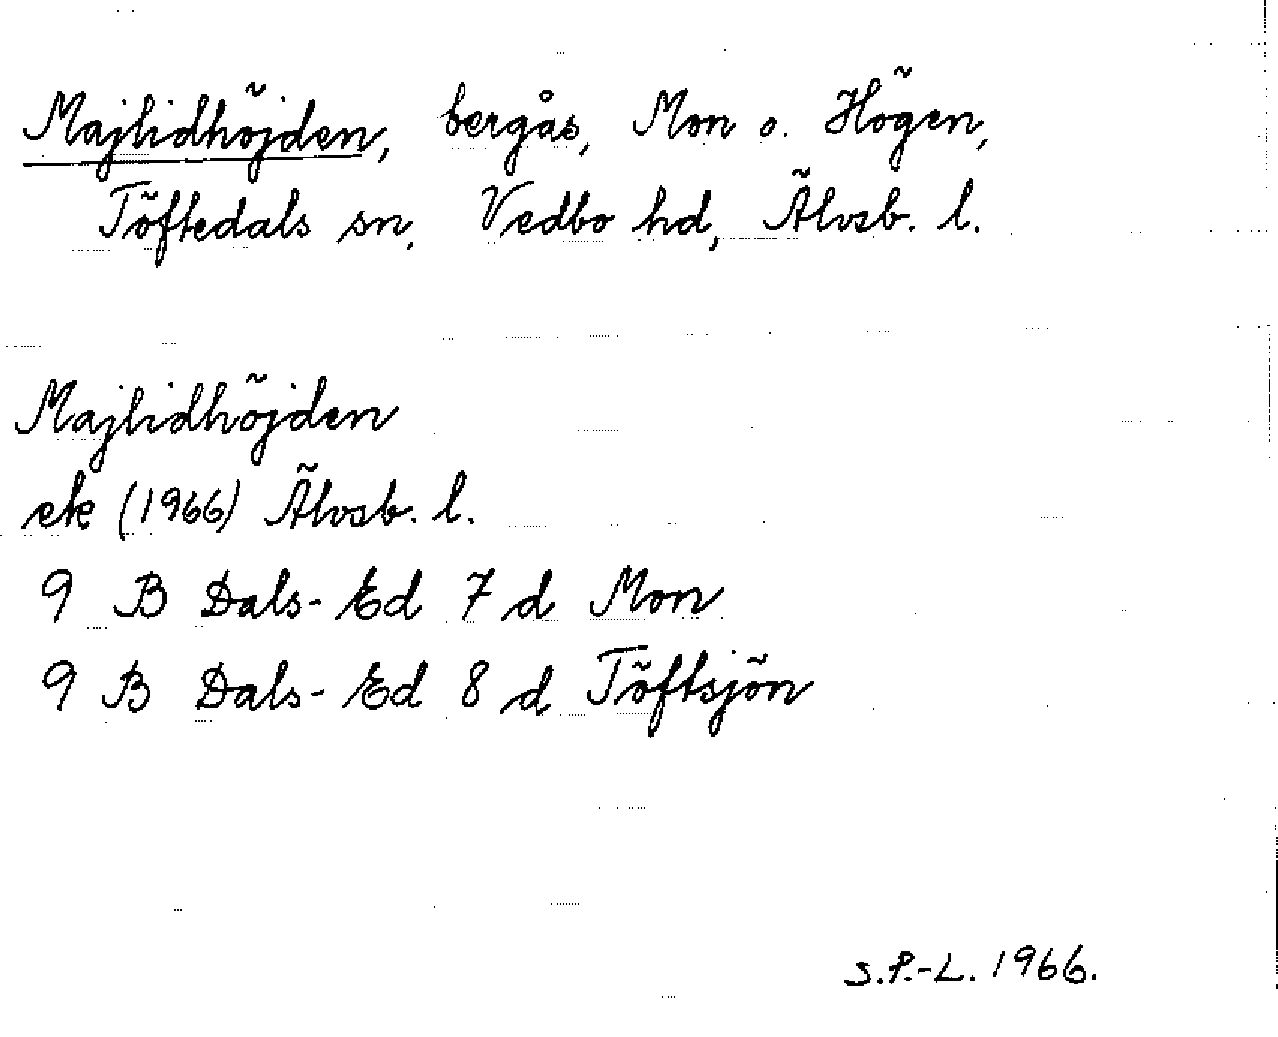 Majlidhöjden, bergås, Mon o. Högen,
Töftedals sn, Vedbo hd, Älvsb. l.
Majlidhöjden
ek (1966) Älvsb. l.
9 B Dals-Ed 7 d Mon
9 B Dals-Ed 8 d Töftsjön
S.P.-L. 1966.